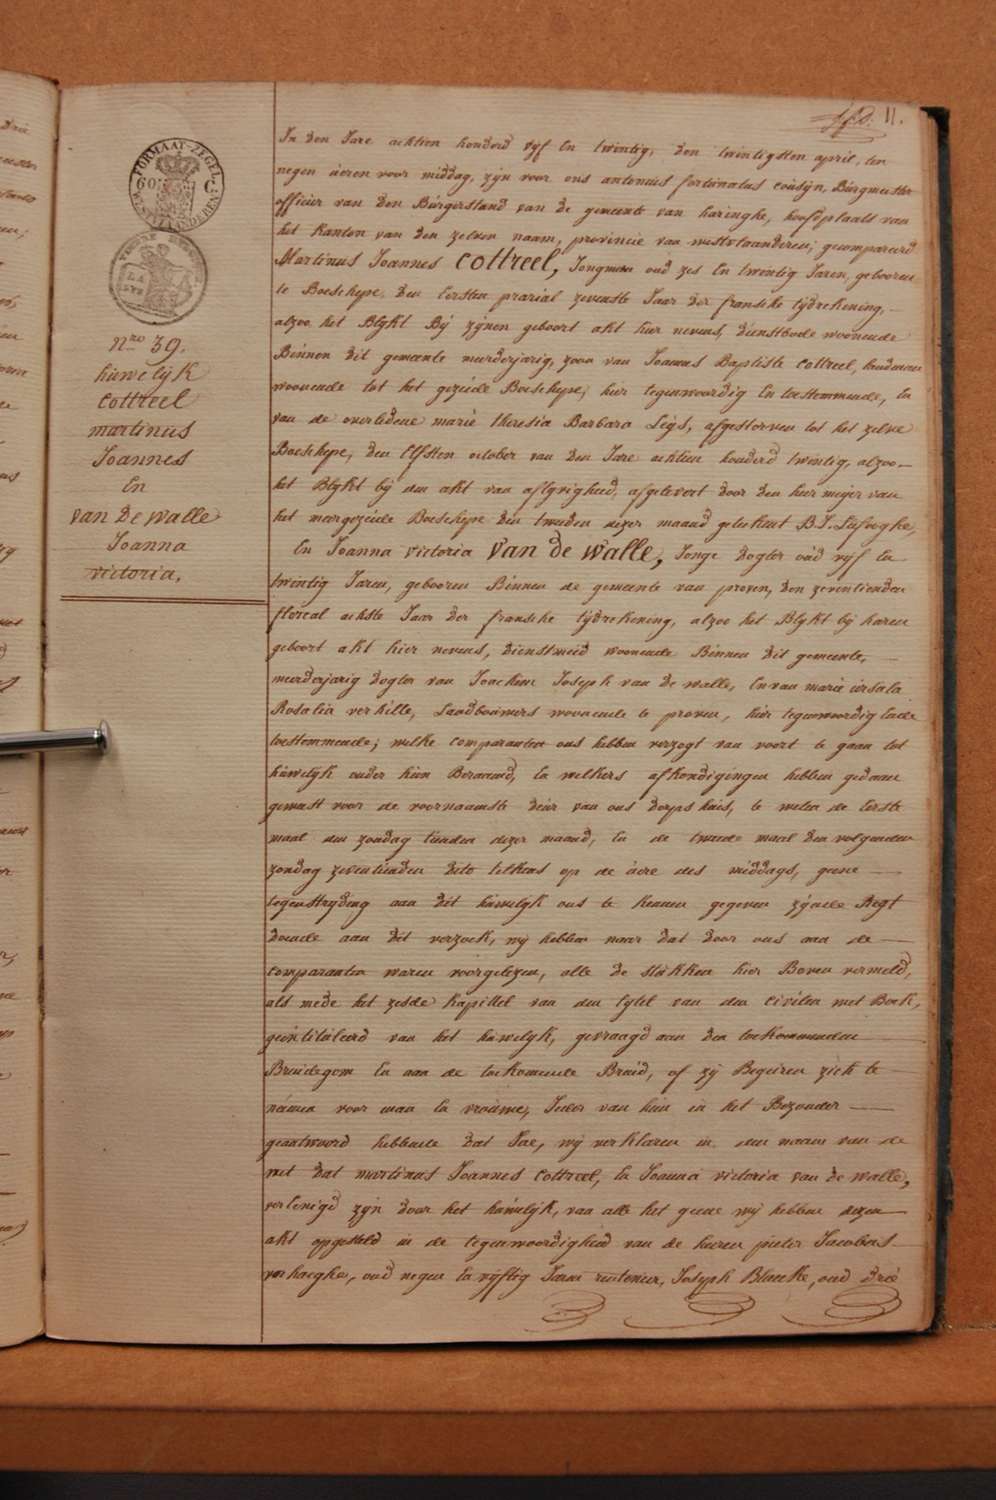 fo. 11.
FORMAAT-ZEGEL
60 C.
WEST-VLAANDEREN
Nro 39.
huwelijk
cottreel
martinus
Joannes
En
van De walle
Joanna
victoria.
In den Jare achtien honderd vijf En twintig, den twintigsten april, ten
negen úeren voor middag, zijn voor ons antonius fortúnatus coúsijn, Búrgmeester
officier van den Búrgerstand van de gemeente van haringhe, hoofdplaats van
het kanton van den zelven naam, provincie van westvlaanderen; gecompareerd
Martinus Joannes cottreel, Jongman oud zes En twintig Jaren, geboren
te Boeschepe, den Eersten prarial zevenste Jaar der fransche tijdrekening,
alzoo het Blijkt Bij zijnen geboort akt hier nevens, dienstbode woonende
Binnen dit gemeente meerderjarig, zoon van Joannes Baptiste cottreel, landman
woonende tot het gezeide Boeschepe, hier tegenwoordig En toestemmende, En
van de overledene marie theresia Barbara Leijs, afgestorven tot het zelve
Boeschepe, den Elfsten october van den Jare achtien honderd twintig, alzoo
het Blijkt bij den akt van aflijvigheid, afgelevert door den heer meijer van
het meergezeide Boeschepe den tweeden dezer maand geteekent B.J.
En Joanna victoria van de walle, Jonge Dogter oúd vijf En
twintig Jaren, geboren Binnen de gemeente van proven, den zeventienden
floreal achste Jaar der fransche tijdrekening, alzoo het Blijkt bij haren
geboort akt hier nevens, dienstmeid woonende Binnen dit gemeente,
meerderjarig dogter van Joachim Joseph van de walle, En van marie úrsúla
Rosalia verhille, Landboúwers woonende te proven, hier tegenwoordig Ende
toestemmende; welke comparanten ons hebben verzogt van voort te gaan tot
húwelijk onder hún Beraamd, En welkers afkondigingen hebben gedaan
geweest voor de voornaamste deúr van ons dorps húis, te weten de Eerste
maal den zondag tienden dezer maand, En de tweede maal den volgenden
zondag zeventienden dito telkens op de úere des middags, geene
tegenstrijding aan dit húwelijk ons te kennen gegeven zijnde Regt
doende aan dit verzoek, wij hebben naar dat door ons aan de
comparanten waren voorgelezen, alle de stúkken hier Boven vermeld,
als mede het zesde kapittel van den tytel van den civilen wet Boek,
geíntitúleerd van het húwelijk, gevraagd aan den toekommenden
Bruidegom En aan de toekomende Bruid, of zij Begeiren zich te
neimen voor man En vroúwe, Jeder van hún in het Bezonder
geantwoord hebbende dat Jae, wij verklaren in den naam van de
wet dat martinus Joannes cottreel, En Joanna victoria van de walle,
verEenigd zijn door het húwelijk, van alle het geene wij hebben dezen
akt opgesteld in de tegenwoordigheid van de heeren pieter Jacobus
verhaeghe, oud negen En vijftig Jaren rentenier, Joseph Blaecke, oud Drie